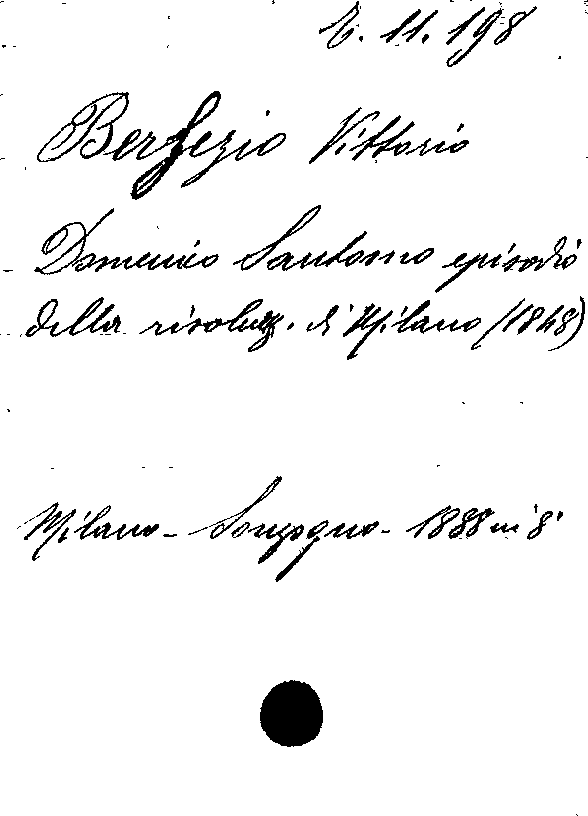 E. 11. 198
Bersezio Vittorio
Domenico Santorno episodio
della rivoluz. di Milano (1848)
Milano - Sonzogno - 1888 in 8°